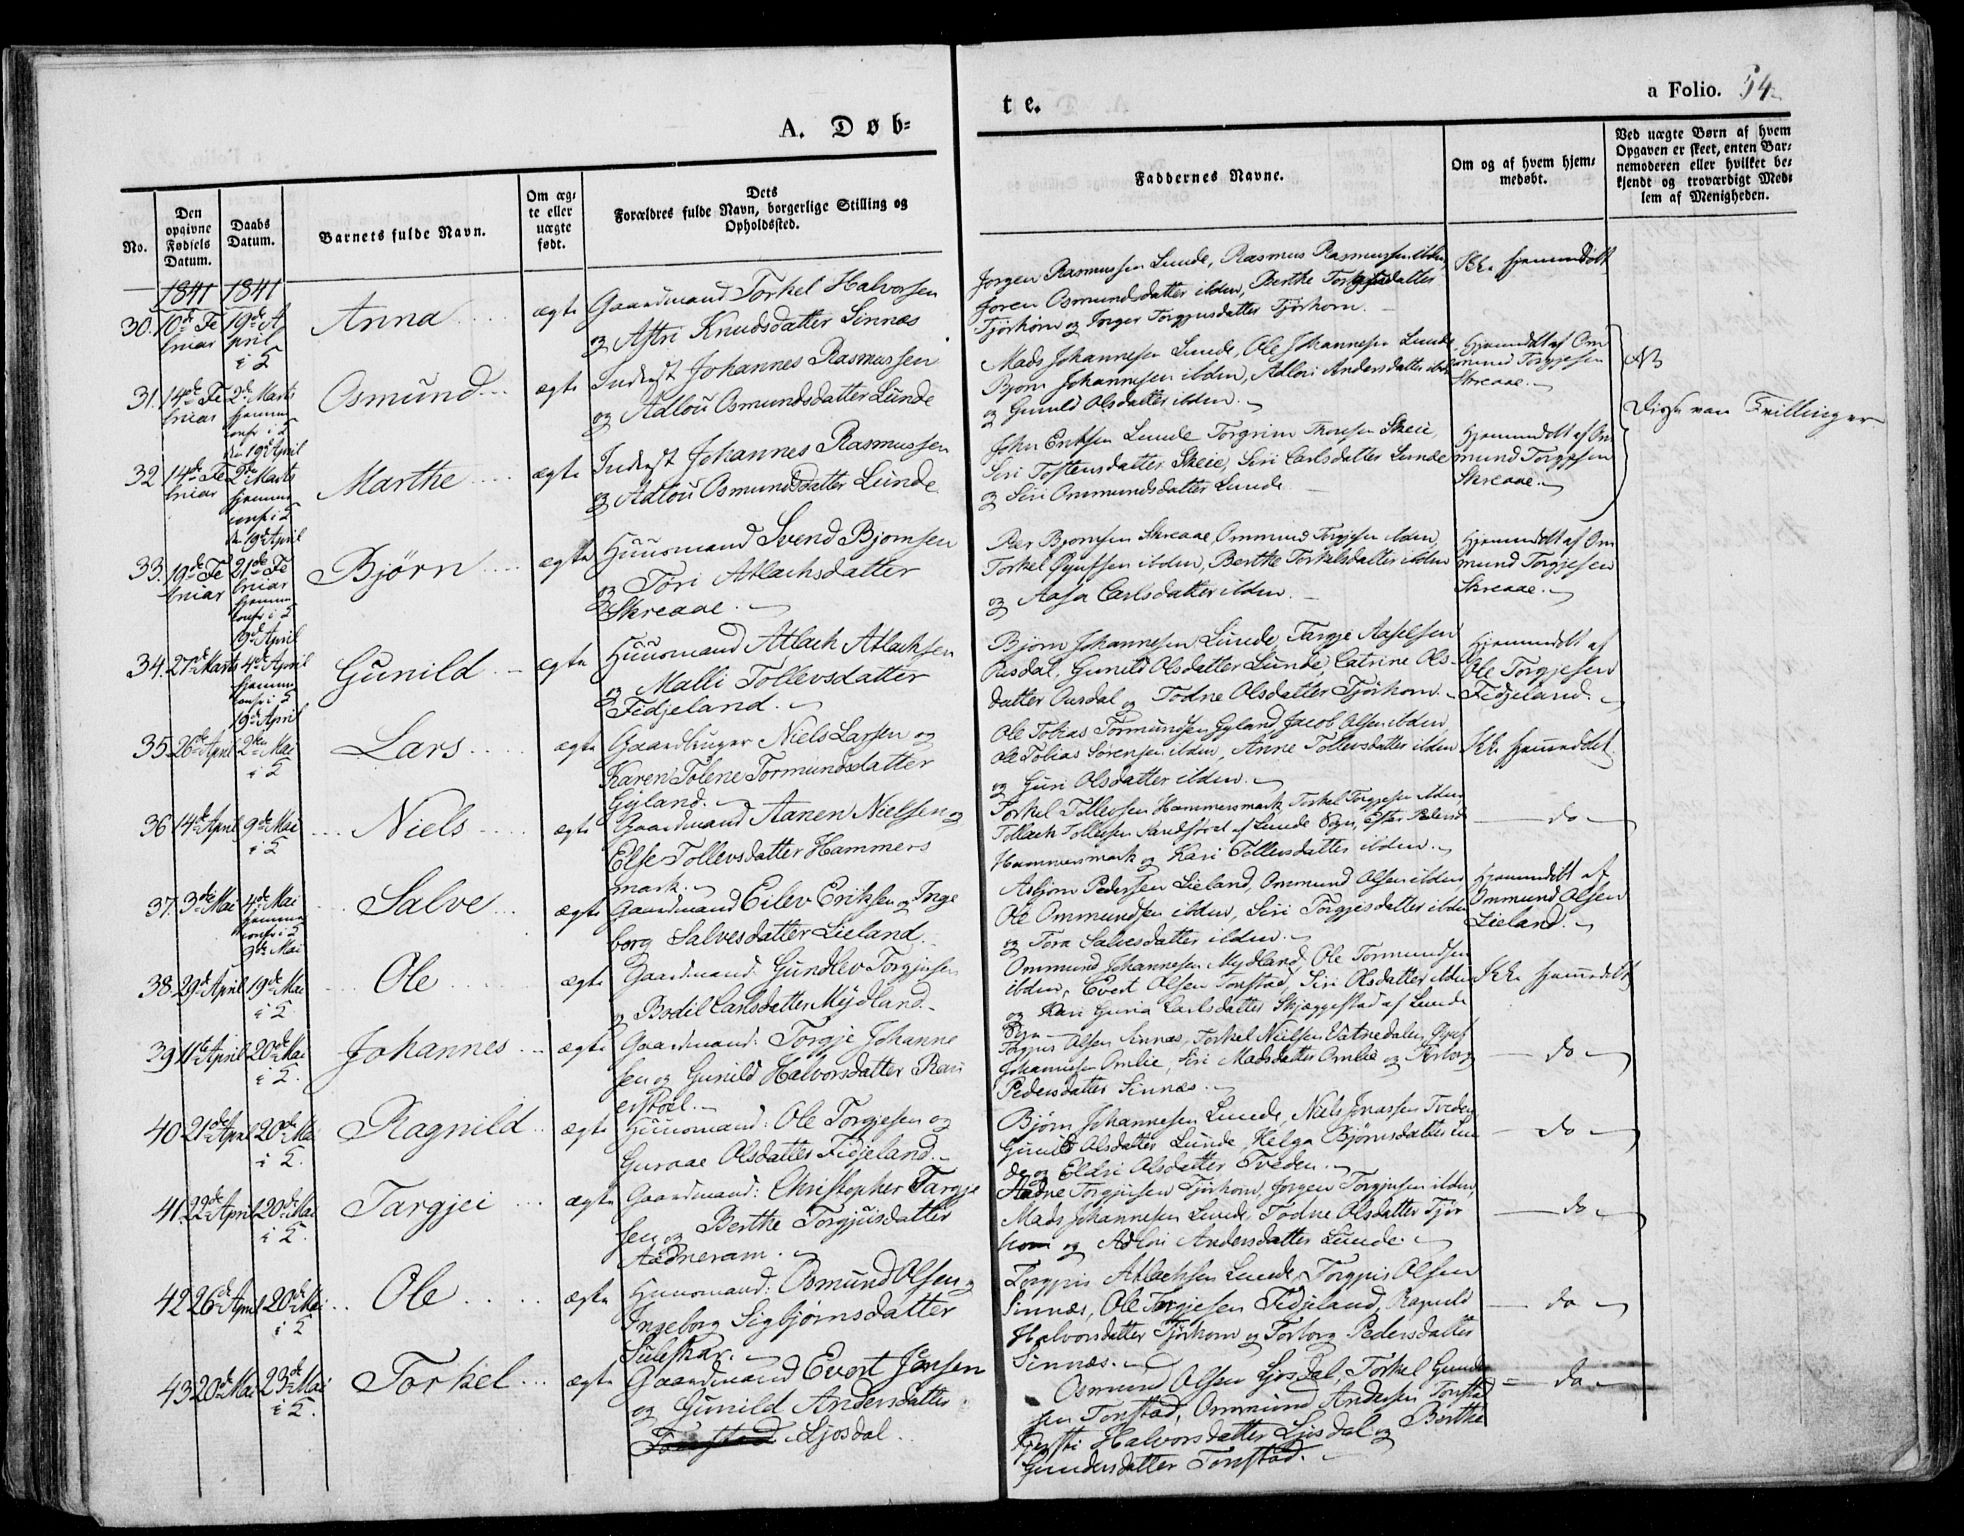 A. Døb-
te.
a Folio. 54.
No.
Den opgivne Fødsels Datum.
Daabs Datum.
Barnets fulde Navn.
Om ægte eller uægte født.
Dets Forældres fulde Navn, borgerlige Stilling og Opholdssted.
Faddernes Navne.
Om og af hvem hjemmedøbt.
Ved uægte Børn af hvem
Opgaven er skeet, enten Bar-
nemoderen eller hvilket be-
kjendt og troværdigt Med-
lem af Menigheden.
1841 1841
30. 10de Fe
bruar
19de A
pril
Anna
ægte
Gaardmand Torkel Halvorsen
og Astri Knudsdatter Sinnæs
Jørgen Rasmussen Lunde, Rasmus Rasmussen ibden,
Osmundsdatter ibden, Berthe
Tjørhom og Torgjusdatter Tjørhom.
Ikke hjemmedøbt
31. 14de Fe
bruar
2den Marts
hjemme
conf: i
den 19de April
Osmund
ægte
Inderst Johannes Rasmussen
og Adlou Osmundsdatter Lunde
Mads Johannesen Lunde, Ole Johannesen Lunde,
Bjørn Johannesen ibden, Adlou Andersdatter
og Gunild Olsdatter ibden.
Hjemmedøbt af Om
mund Torgjesen
Skreaae.
NB
Disse var Trillinger
32 14de Fe
bruar
2den Marts
hjemme
conf i
den 19de April
Marthe
ægte
Inderst Johannes Rasmussen
og Adlou Osmundsdatter Lunde
John Eriksen Lunde Torgrim Thoresen Skeie,
Siri Tostensdatter Skeie, Siri Carlsdatter Lunde
og Siri Ommundsdatter Lunde
Hjemmedøbt af Om
mund Torgjesen
Skreaae.
33. 19de Fe
bruar
21de Fe
bruar
hjemme
conf: i
19de April
Bjørn
ægte
Huusmand Svend Bjørnsen
og Tori Atlachsdatter
Skreaae.
Per Bjørnsen Skreaae, Ommund Torgjesen ibden,
Torkel ibden, Berthe Torkelsdatter ibden
og Aasa Carlsdatter ibden.
Hjemmedøbt af Om
mund Torgjesen
Skreaae.
34. 27de Marts
4de April
hjemme
conf: i
19de April
Gunild
ægte
Huusmand Atlach Atlachsen
og Malli Tollevsdatter
Fidjeland.
Bjørn Johannesen Lunde, Targje Axelsen
Ousdal, Gunild Olsdatter Lunde, Catrine Ols-
datter Ousdal og Todne Olsdatter Tjørhom.
Hjemmedøbt af
Ole Torgjesen
Fidjeland.
35 26de April
2den Mai
Lars
ægte
Gaardbruger Niels Larsen og
Karen Tolene Tormundsdatter
Gyland.
Ole Tobias Tormundsen Gyland, Jacob Olsen ibden,
Ole Tobias Sørensen ibden, Anne Tollevsdatter ibden
og Guri Olsdatter ibden.
Ikke hjemmedøbt.
36 14de April
9de Mai
Niels
ægte
Gaardmand Aanen Nielsen og
Else Tollevsdatter Hammers
mark.
Torkel Tollevsen Hammersmark, Torkel Torgjesen ibden,
Tollach Tollevsen af Lunde Sogn,
Hammersmark og Kari Tollevsdatter ibden.
do
37. 3de Mai
4de Mai
hjemme
conf: i
9de Mai
Salve
ægte
Gaardmand Eilev Eriksen og Inge
borg Salvesdatter Lieland.
Asbjørn Pedersen Lieland, Ommund Olsen ibden,
Ole Ommundsen ibden, Siri Torgjesdatter ibden
og Tora Salvesdatter ibden.
Hjemmedøbt af
Ommund Olsen
Lieland.
38. 29de April
19de Mai
Ole
ægte
Gaardmand: Gundlev Torgjusen
og Bodil Carlsdatter Mydland.
Ommund Johannesen Mydland, Ole Tormundsen
ibden, Evert Olsen Tonstad, Siri Olsdatter ibden
og Guria Carlsdatter Skjæggestad af Lunde
Sogn
Ikke hjemmedøbt
39 11te April
20de Mai
Johannes
ægte
Gaardmand: Torgje Johanne
sen og Gunild Halvorsdatter
Torgius Olsen Sinnæs, Torkel Nielsen
Johannesen Omlie, Siri Madsdatter Omlie og Torborg
Pedersdatter Sinnæs.
do
40 21de April
20de Mai
Ragnild
ægte
Huusmand: Ole Torgjesen og
Guraae Olsdatter Fidjeland.
Bjørn Johannesen Lunde, Niels Tveden
Gunild Olsdatter Lunde, Helga Bjørnsdatter Lun
de og Eldri Olsdatter Tveden.
do
41. 22de April
20de Mai
Targjei
ægte
Gaardmand: Christopher Targje
sen og Berthe Torgjusdatter
Aadneram.
Torgjusen Tjørhom, Jørgen Torgjusen ibden,
Mads Johannesen Lunde, Todne Olsdatter Tjør
hom og Adlou Andersdatter Lunde.
do
42 26de April
20de Mai
Ole
ægte
Huusmand: Osmund Olsen og
Ingeborg Sigbjørnsdatter
Suleskar.
Torgjus Atlachsen Lunde, Torgjus Olsen
Sinnæs, Ole Torgjesen Fidjeland, Ragnild
Halvorsdatter Tjørhom og Torborg Pedersdatter
Sinnæs.
do
43 20de Mai
23de Mai
Torkel
ægte
Gaardmand Evert Jonsen
og Gunild Andersdatter
Ljosdal.
Osmund Olsen Ljosdal, Torkel Gunder
sen Tonstad, Ommund Andersen Tonstad
Halvorsdatter Ljosdal og Berthe
Gundersdatter Tonstad.
do